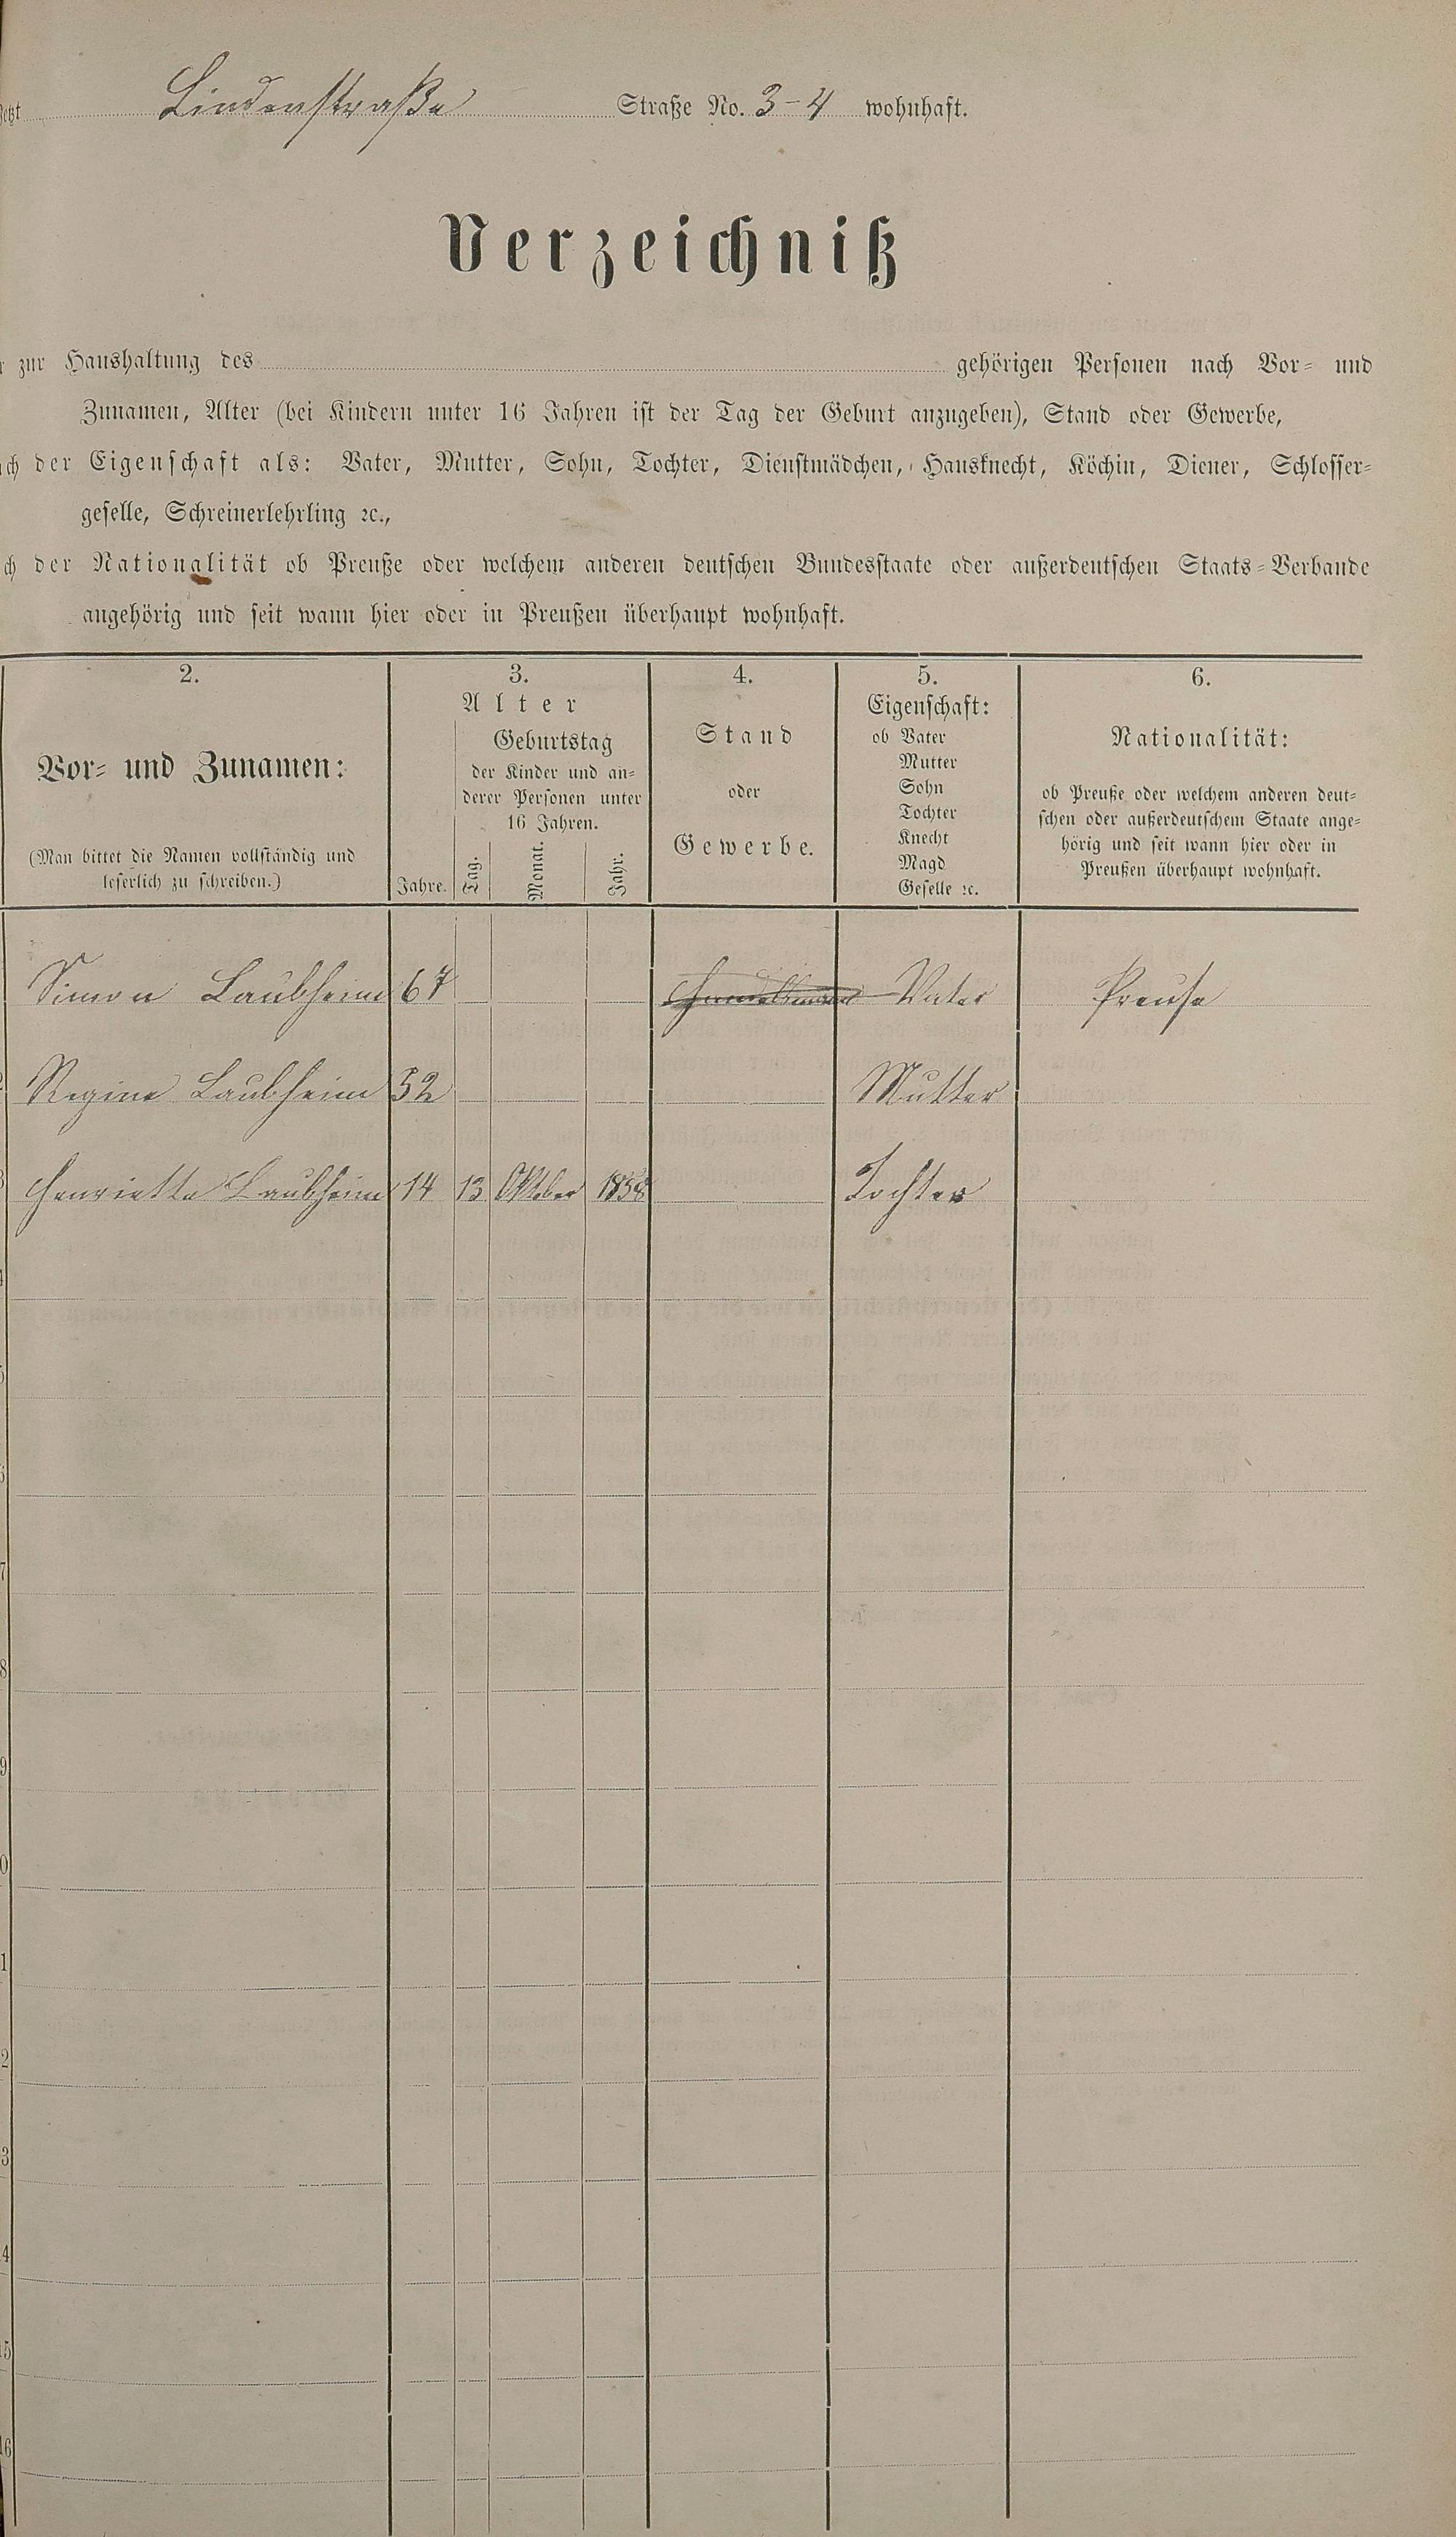 jetzt Lindenstraße Straße No. 3-4 wohnhaft.
Verzeichniß
zur Haushaltung des gehörigen Personen nach Vor- und
Zunamen, Alter (bei Kindern unter 16 Jahren ist der Tag der Geburt anzugeben), Stand oder Gewerbe,
ch der Eigenschaft als: Vater, Mutter, Sohn, Tochter, Dienstmädchen, Hausknecht, Köchin, Diener, Schlosser-
geselle, Schreinerlehrling ꝛc.,
ch der Nationalität ob Preuße oder welchem anderen deutschen Bundesstaate oder außerdeutschen Staats-Verbande
angehörig und seit wann hier oder in Preußen überhaupt wohnhaft.
2. 3. 4. 5. 6.
Vor- und Zunamen:
(Man bittet die Namen vollständig und
leserlich zu schreiben.)
Alter
Geburtstag
der Kinder und an-
derer Personen unter
16 Jahren.
Jahre. Tag. Monat. Jahr.
Stand
oder
Gewerbe.
Eigenschaft:
ob Vater
Mutter
Sohn
Tochter
Knecht
Magd
Geselle ꝛc.
Nationalität:
ob Preuße oder welchem anderen deut-
schen oder außerdeutschem Staate ange-
hörig und seit wann hier oder in
Preußen überhaupt wohnhaft.
Simon Laubheim 67 Handelsmann Vater Preuße
2 Regine Laubheim 52 Mutter
3 Henrietta Laubheim 14 13 Oktober 1858 Tochter
4
5
6
7
8
9
0
1
2
3
4
15
16